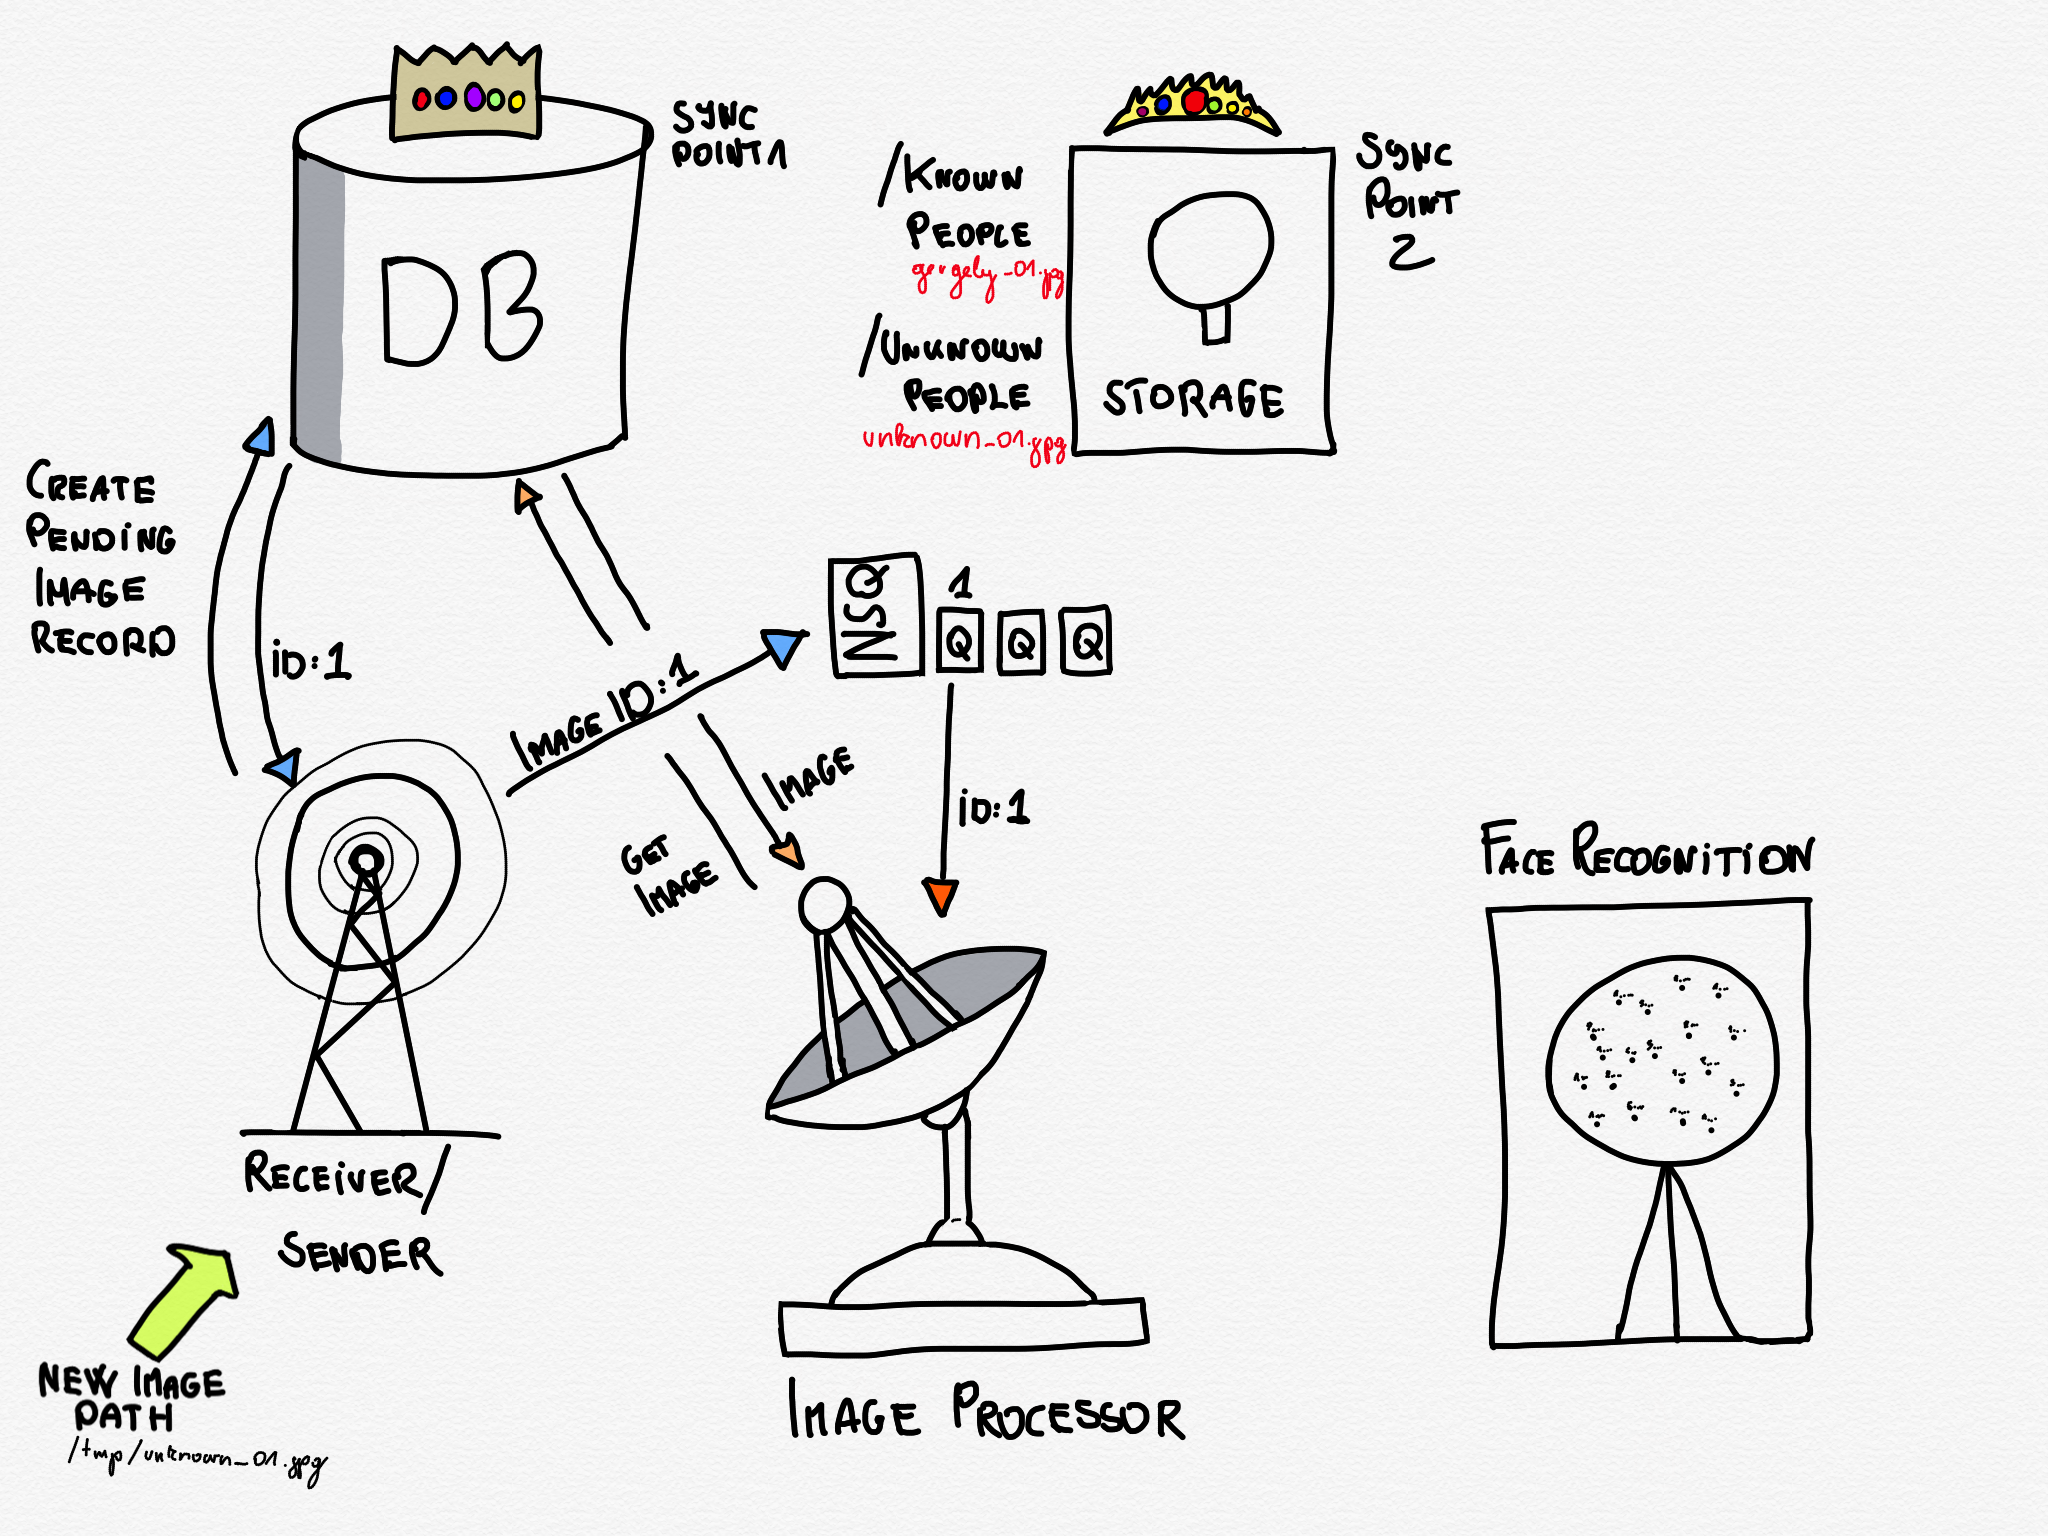 SYNC
POINT 1
DB
/KNOWN
PEOPLE
gergely_01.jpg
/UNKNOWN
PEOPLE
unknown_01.jpg
STORAGE
SYNC
POINT
2
CREATE
PENDING
IMAGE
RECORD
iD:1
IMAGE ID:1
NSQ
1
Q Q Q
iD:1
IMAGE
GET
IMAGE
FACE RECOGNITION
RECEiVER/
SENDER
NEW IMAGE
PATH
/tmp/unknown_01.jpg
IMAGE PROCESSOR